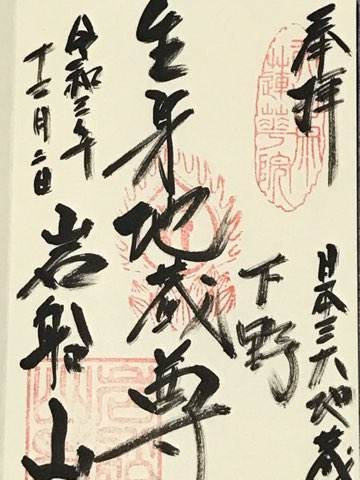 奉拝
日本三大地蔵
下野
生身地蔵尊
岩船山
令和三年
十二月二日
蓮華院